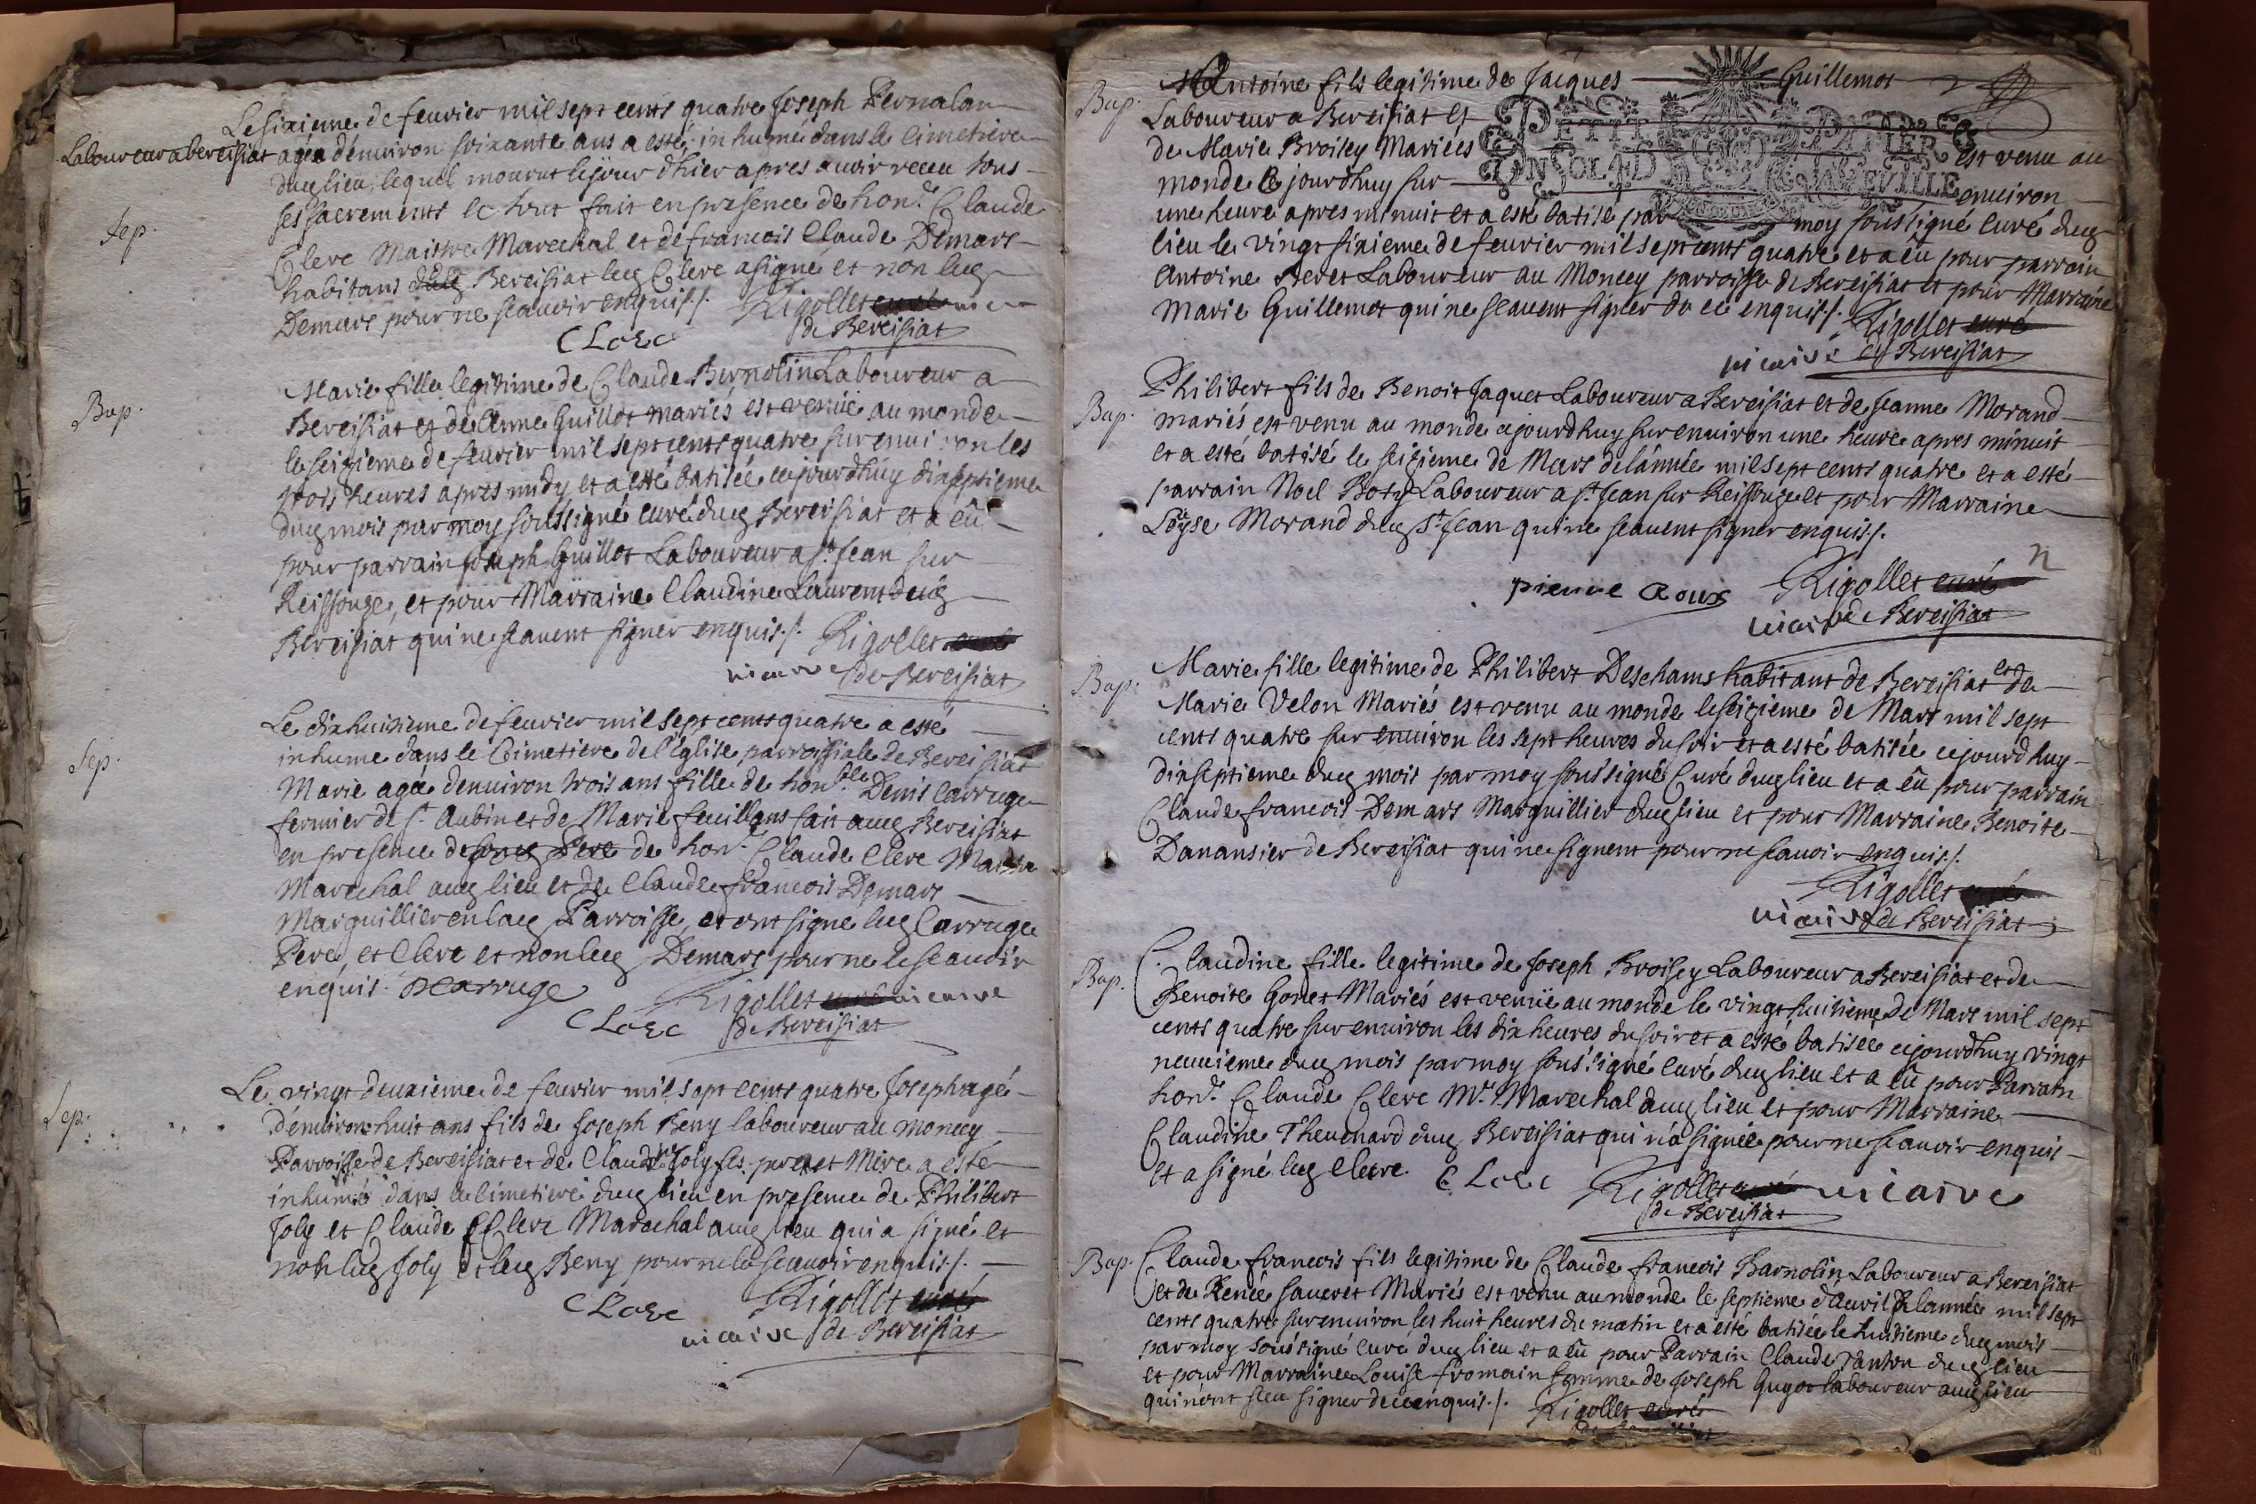 Le sixieme de feurier mil sept cents quatre Joseph Pernalon
Laboureur a bereisiat agéa denuiron soixante ans a esté inhumé dans le cimetiere
dudt lieu, lequel mourut le jour dhier apres auoir receu tous
ses sacrements le tout fait en presence de hon. Claude
Sep.
Clere Maistre Marechal et de francois Claude Demars
habitans dudt Bereisiat ledt Clere a signé et non ledt
Demars pour ne scauoir enquis./. Rigollet curé vicaire
CLerc de Bereisiat
Marie fille legitime de Claude Bernolin Laboureur a
Bap.
Bereisiat et de Anne Guillot mariés est venüe au monde
le seizieme de feurier mil sept cents quatre sur enuiron les
trois heures apres midy et a esté batisée cejourdhuy dixseptieme
dudt mois par moy soussigné curé dudt Bereisiat et a eü
pour parrain Joseph Guillot Laboureur a st Jean sur
Reissouze, et pour Marraine Claudine Laurent dudt
Bereisiat qui ne scauent signer enquis./. Rigollet curé
vicaire de Bereisiat
Le dixhuitieme de feurier mil sept cents quatre a esté
inhume dans le Cimetiere de l'Eglise parroissiale de Bereisiat
Sep.
Marie agée denuiron trois ans fille de honble Denis Carruge
fermier de st Aubin et de Marie feuillans fait audt Bereisiat
en presence de sondt Pere de hon. Claude Clere Maitre
Marechal audt lieu et de Claude francois Demars
Marguillier en ladt Parroisse, et ont signé ledt Carruge
Pere, et Clere et non ledt Demars pour ne le scauoir
enquis. DCarruge Rigollet curé vicaire
CLerc de Bereisiat
Le vingt deuxieme de feurier mil sept cents quatre Joseph agé
Sep.
denuiron huit ans fils de Joseph Beny laboureur au moncey
Parroisse de Bereisiat et de Claudine Joly ses pere et Mere a esté
inhumé dans le cimetiere dudt lieu en presence de Philibert
Joly et Claude Clere Marechal audt lieu qui a signé et
non ledt Joly et ledt Beny pour ne le scauoir enquis./.
CLerc Rigollet curé
vicaire de Bereisiat
Bap.
Antoine fils legitime de Jacques Guillemot
PETIT PAPIER
Laboureur a Bereisiat et
de Marie Broisey Mariés est venu au
monde le jourdhuy sur enuiron
une heure apres minuit et a esté batisé par moy soussigné curé dudt
lieu le vingt sixieme de feurier mil sept cents quatre et a eü pour parrain
Antoine Beret Laboureur au Moncey parroisse de Bereisiat et pour Marraine
Marie Guillemot qui ne scauent signer de ce enquis./. Rigollet curé
vicaire de Bereisiat
Philibert fils de Benoit Jaquet Laboureur a Bereisiat et de Jeanne Morand
Bap.
mariés, est venu au monde cejourdhuy sur enuiron une heure apres minuit
et a esté batisé le seizieme de Mars de lannée mil sept cents quatre et a esté
parrain Noel Boty Laboureur a st Jean sur Reissouze et pour Marraine
Loÿse Morand dudt st Jean qui ne scauent signer enquis./.
pierre Roux Rigollet curé
vicaire de Bereisiat
Marie fille legitime de Philibert Deschams habitant de Bereisiat et de
Bap.
Marie Velon Mariés est venu au monde le seizieme de Mars mil sept
cents quatre sur enuiron les sept heures du soir et a esté batisée cejourdhuy
dixseptieme dudt mois par moy soussigné Curé dudt lieu et a eü pour parrain
Claude francois Demars Marguillier dudt lieu et pour Marraine Benoite
Danansier de Bereisiat qui ne signent pour ne scauoir enquis./.
Rigollet curé
vicaire de Bereisiat
Claudine fille legitime de Joseph Broisey Laboureur a Bereisiat et de
Bap.
Benoite Goret Mariés est venüe au monde le vingt huitieme de Mars mil sept
cents quatre sur enuiron les dix heures du soir et a esté batisée cejourdhuy vingt
neuuieme dudt mois par moy soussigné curé dudt lieu et a eü pour Parrain
hon. Claude Clere Mr Marechal audt lieu et pour Marraine
Claudine Theuenard dudt Bereisiat qui n'a signée pour ne scauoir enquis
et a signé ledt Clere. CLerc Rigollet curé vicaire
de Bereisiat
Bap.
Claude francois fils legitime de Claude francois Barnolin Laboureur a Bereisiat
et de Renée sauuret Mariés est venu au monde le septieme d'Auril de lannée mil sept
cents quatre sur enuiron les huit heures du matin et a esté batisée le huitieme dudt mois
par moy soussigné curé dudt lieu et a eü pour Parrain Claude Tanton dudt lieu
et pour Marraine Louise fromain femme de Joseph Guyot laboureur audt lieu
qui n'ont sceu signer de ce enquis./. Rigollet curé